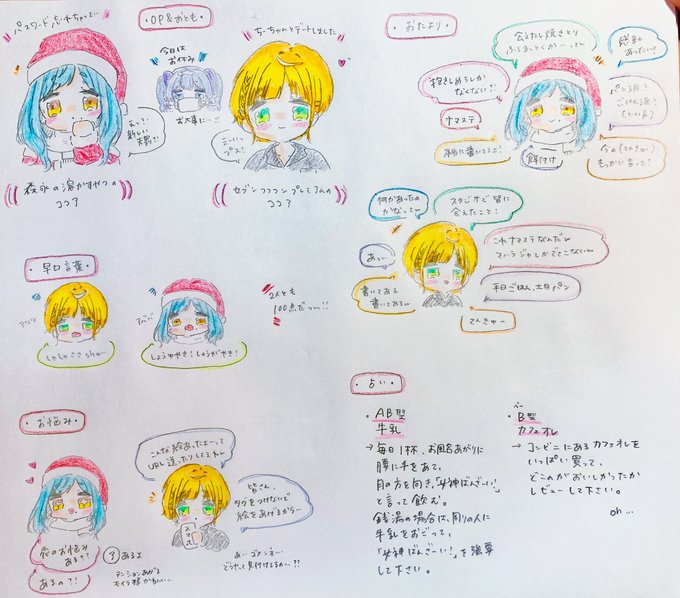 パスワード忘れちゃって
OP&おとも
今日は
お休み
お大事に…!!
ちーちゃんとデートしました
えっ?
新しい
天野!?
森永の溶かすやつの
ココア
セブン
ココア
早口言葉
しょうゆやき!しょうがやき!
2人とも
100点だっ…!!
お悩み
俺のお悩み
ある??
あるのさ!
ア あるよ
テンションあがる
こんな絵あったよーって
URL送ったりしてすみません
皆さん、
タグをつけないで
絵をあげるから〜
あ…ゴメンネ…
どうやって見付けてるの…!?
おたより
抱きしめるしか
なくない?!
ナマステ
本当に書いてるよ!
餌付け
感動
あったい?
パン派?
ごはん派?
今の(てんきゅー)
もっかい言って!
何があったの
かなってw
スタジオで皆に
会えたこと!
あっ…
書いてある
書いてあるw
これナマステなんだw
マハラジャしかでてこないw
平日ごはん、土日パン
てんきゅー
占い
・AB型
牛乳
→毎日1杯、お風呂あがりに
腰に手をあて、
月の方を向き、「女神ばんざーい!」
と言って飲む。
銭湯の場合は、周りの人に
牛乳をおごって、
「女神ばんざーい!」を強要
して下さい。
・B型
カフェオレ
→コンビニにあるカフェオレを
いっぱい買って、
どこのがおいしかったか
レビューして下さい。
oh…